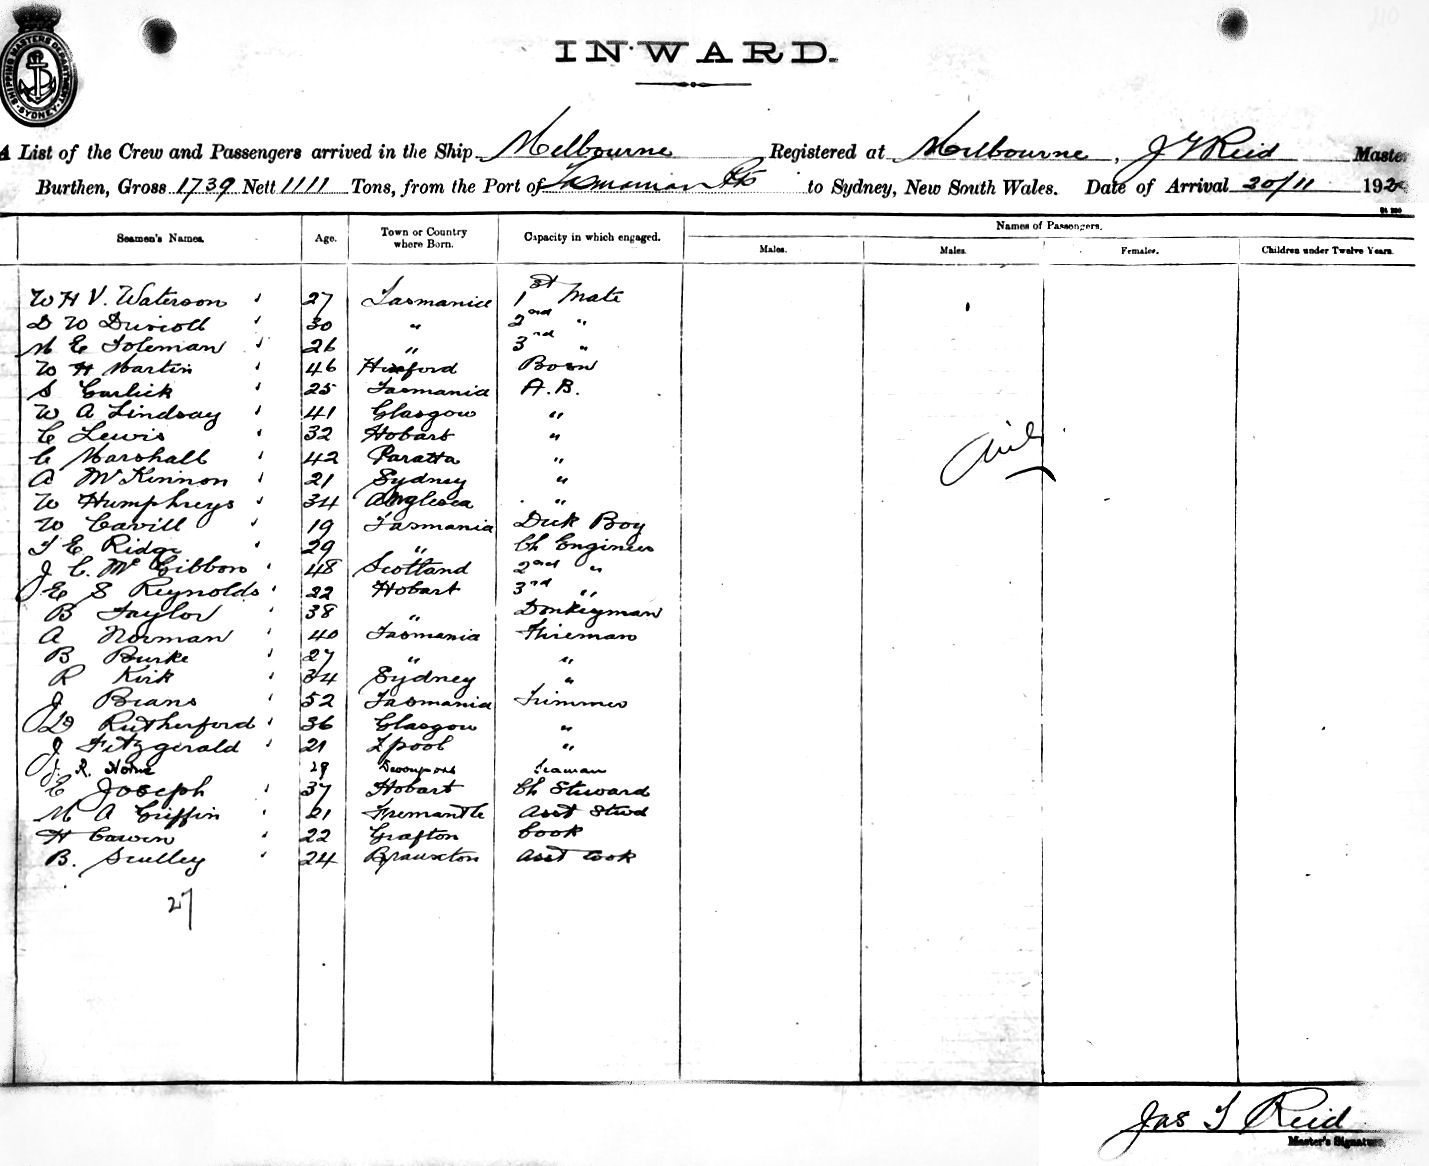 SHIPPING MASTERS DEPARTMENT SYDNEY
INWARD.
A List of the Crew and Passengers arrived in the Ship Melbourne Registered at Melbourne, J T Reid Master
Burthen, Gross 1739 Nett 1111 Tons, from the Port of Tasmanian Pts to Sydney, New South Wales. Date of Arrival 20/11 192
Seamen's Names. Age. Town or Country where Born. Capacity in which engaged. Names of Passengers.
Males. Males. Females. Children under Twelve Years.
W H V. Waterson " 27 Tasmania 1st Mate
D W Driscoll " 30 " 2nd "
M E Toleman " 26 " 3rd "
W H Martin " 46 Bosn
S Garlick " 25 Tasmania A.B.
W A Lindsay " 41 Glasgow "
C Lewis " 32 Hobart "
C Marshall " 42 Paratta "
A McKinnon " 21 Sydney "
W Humphreys " 34 Anglesea "
W Cavill " 19 Tasmania Deck Boy
T E Ridge " 29 " Ch Engineer
J C. McGibbon " 48 Scotland 2nd "
E S Reynolds " 22 Hobart 3rd "
B Taylor " 38 " Donkeyman
A Norman " 40 Tasmania Fireman
B Burke " 27 " "
R Kirk " 34 Sydney "
J Beans " 52 Tasmania Trimmer
D Rutherford " 36 Glasgow "
J Fitzgerald " 21 Lpool "
J. R. Horne 29 Devonport Seaman
E Joseph " 37 Hobart Ch Steward
M A Griffin " 21 Fremantle Asst Stwd
H Cowen 22 Grafton Cook
B. Sculley " 24 Branxton Asst Cook
Nil
27
Jas T Reid
Master's Signature